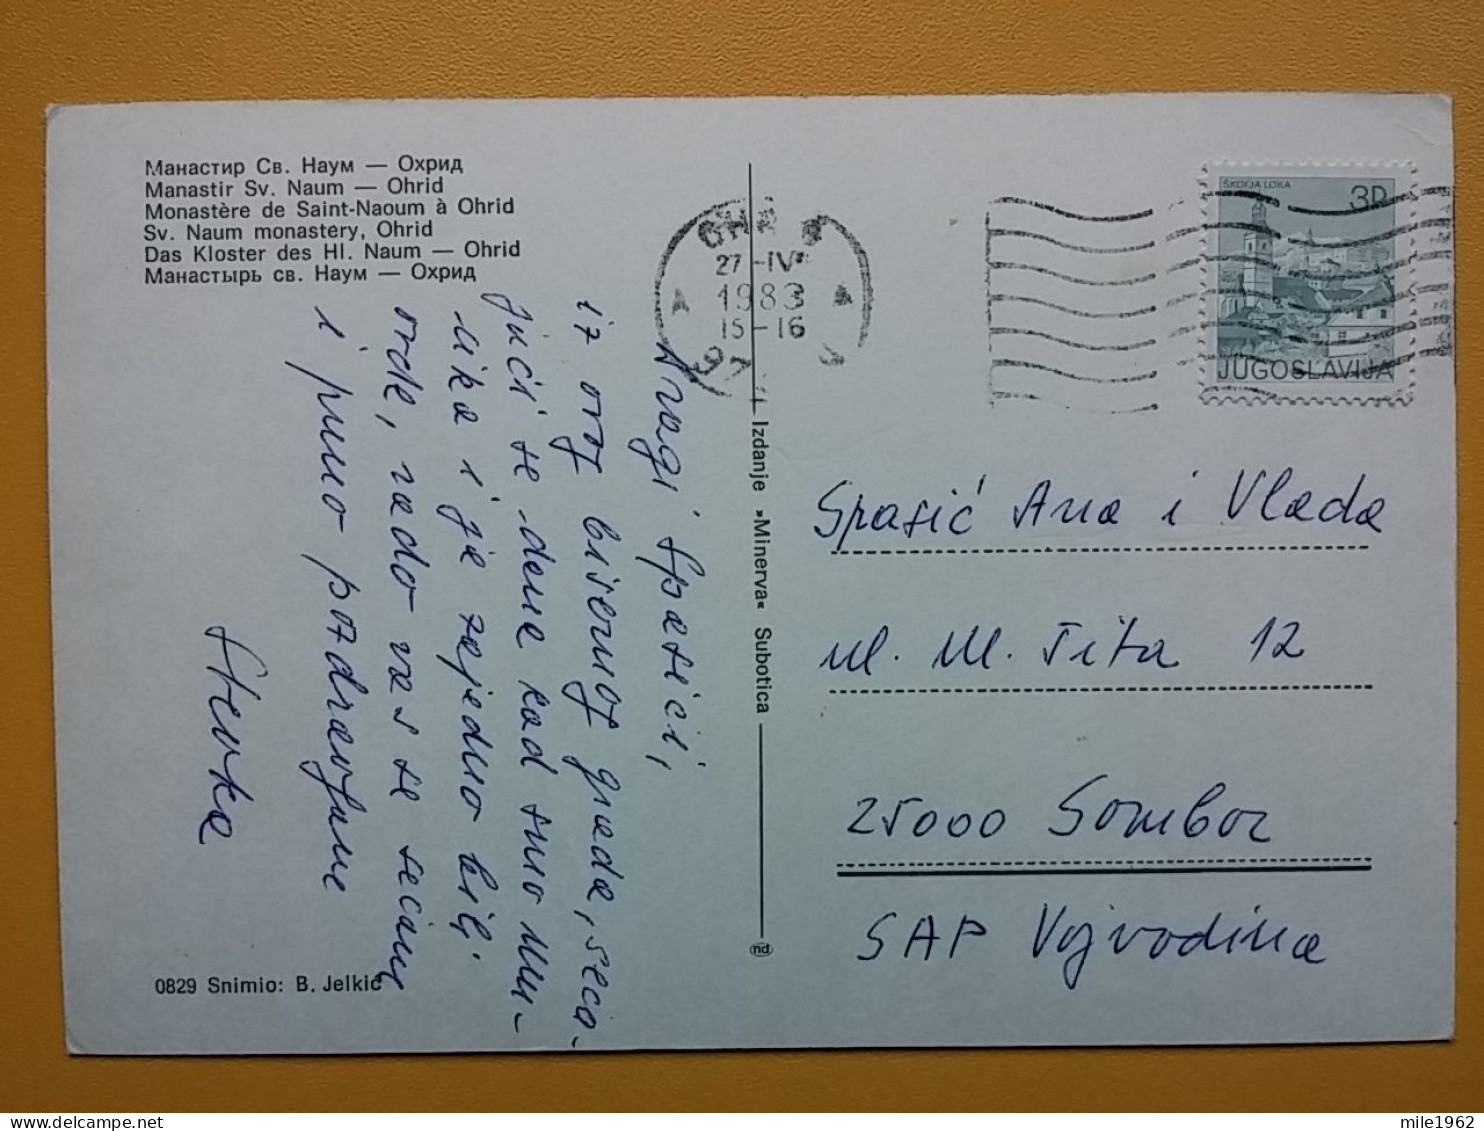 Манастир Св. Наум — Охрид
Manastir Sv. Naum — Ohrid
Monastère de Saint-Naoum à Ohrid
Sv. Naum monastery, Ohrid
Das Kloster des Hl. Naum — Ohrid
Манастырь св. Наум — Охрид
Dragi Spasići,
iz ovog bisernog grada, seća-
jući se dana kad smo Mu-
lika i ja zajedno bili
ovde, rado vas se sećam
i puno pozdravljam
Stevka
0829 Snimio: B. Jelkić
Izdanje »Minerva« Subotica
27 -IV
1983
15-16
A A
ŠKOFJA LOKA
3D
JUGOSLAVIJA
Spasić Ana i Vlada
ul. M. Tita 12
25000 Sombor
SAP Vojvodina
mile1962